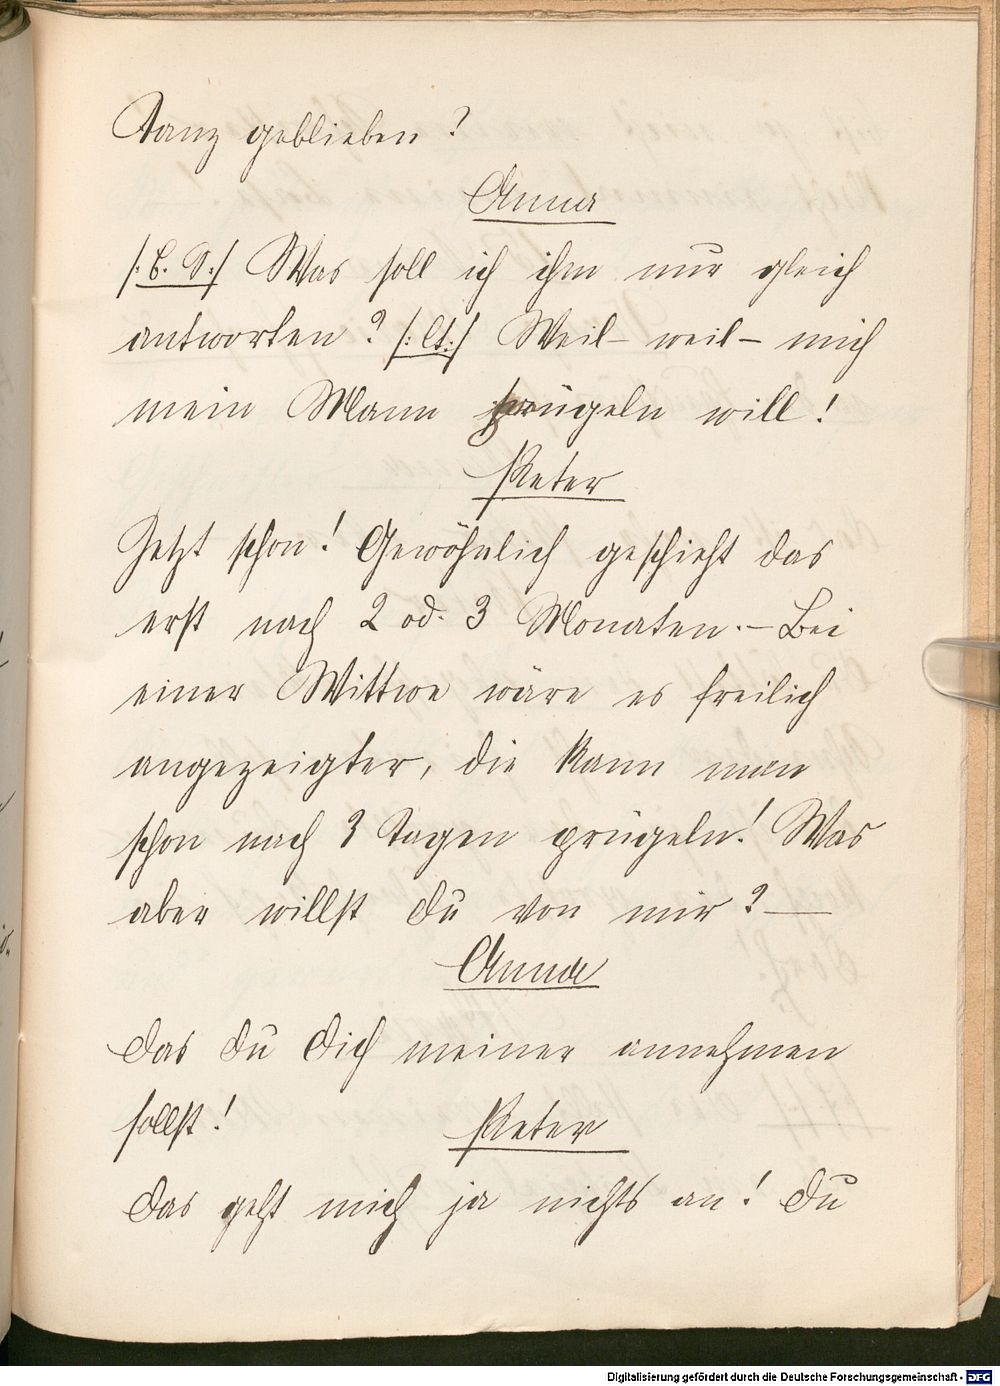 Tanz geblieben?
Anna
/: b. S. :/ Was soll ich ihm nur gleich
antworten? /: lt. :/ Weil – weil – mich
mein Mann prügeln will!
Peter
Jetzt schon! Gewöhnlich geschieht das
erst nach 2 od. 3 Monaten. – Bei
einer Wittwe wäre es freilich
angezeigter, die kann man
schon nach 3 Tagen prügeln! Was
aber willst Du von mir? —
Anna
Das Du Dich meiner annehmen
sollst!
Peter
Das geht mich ja nichts an! Du
Digitalisierung gefördert durch die Deutsche Forschungsgemeinschaft - DFG